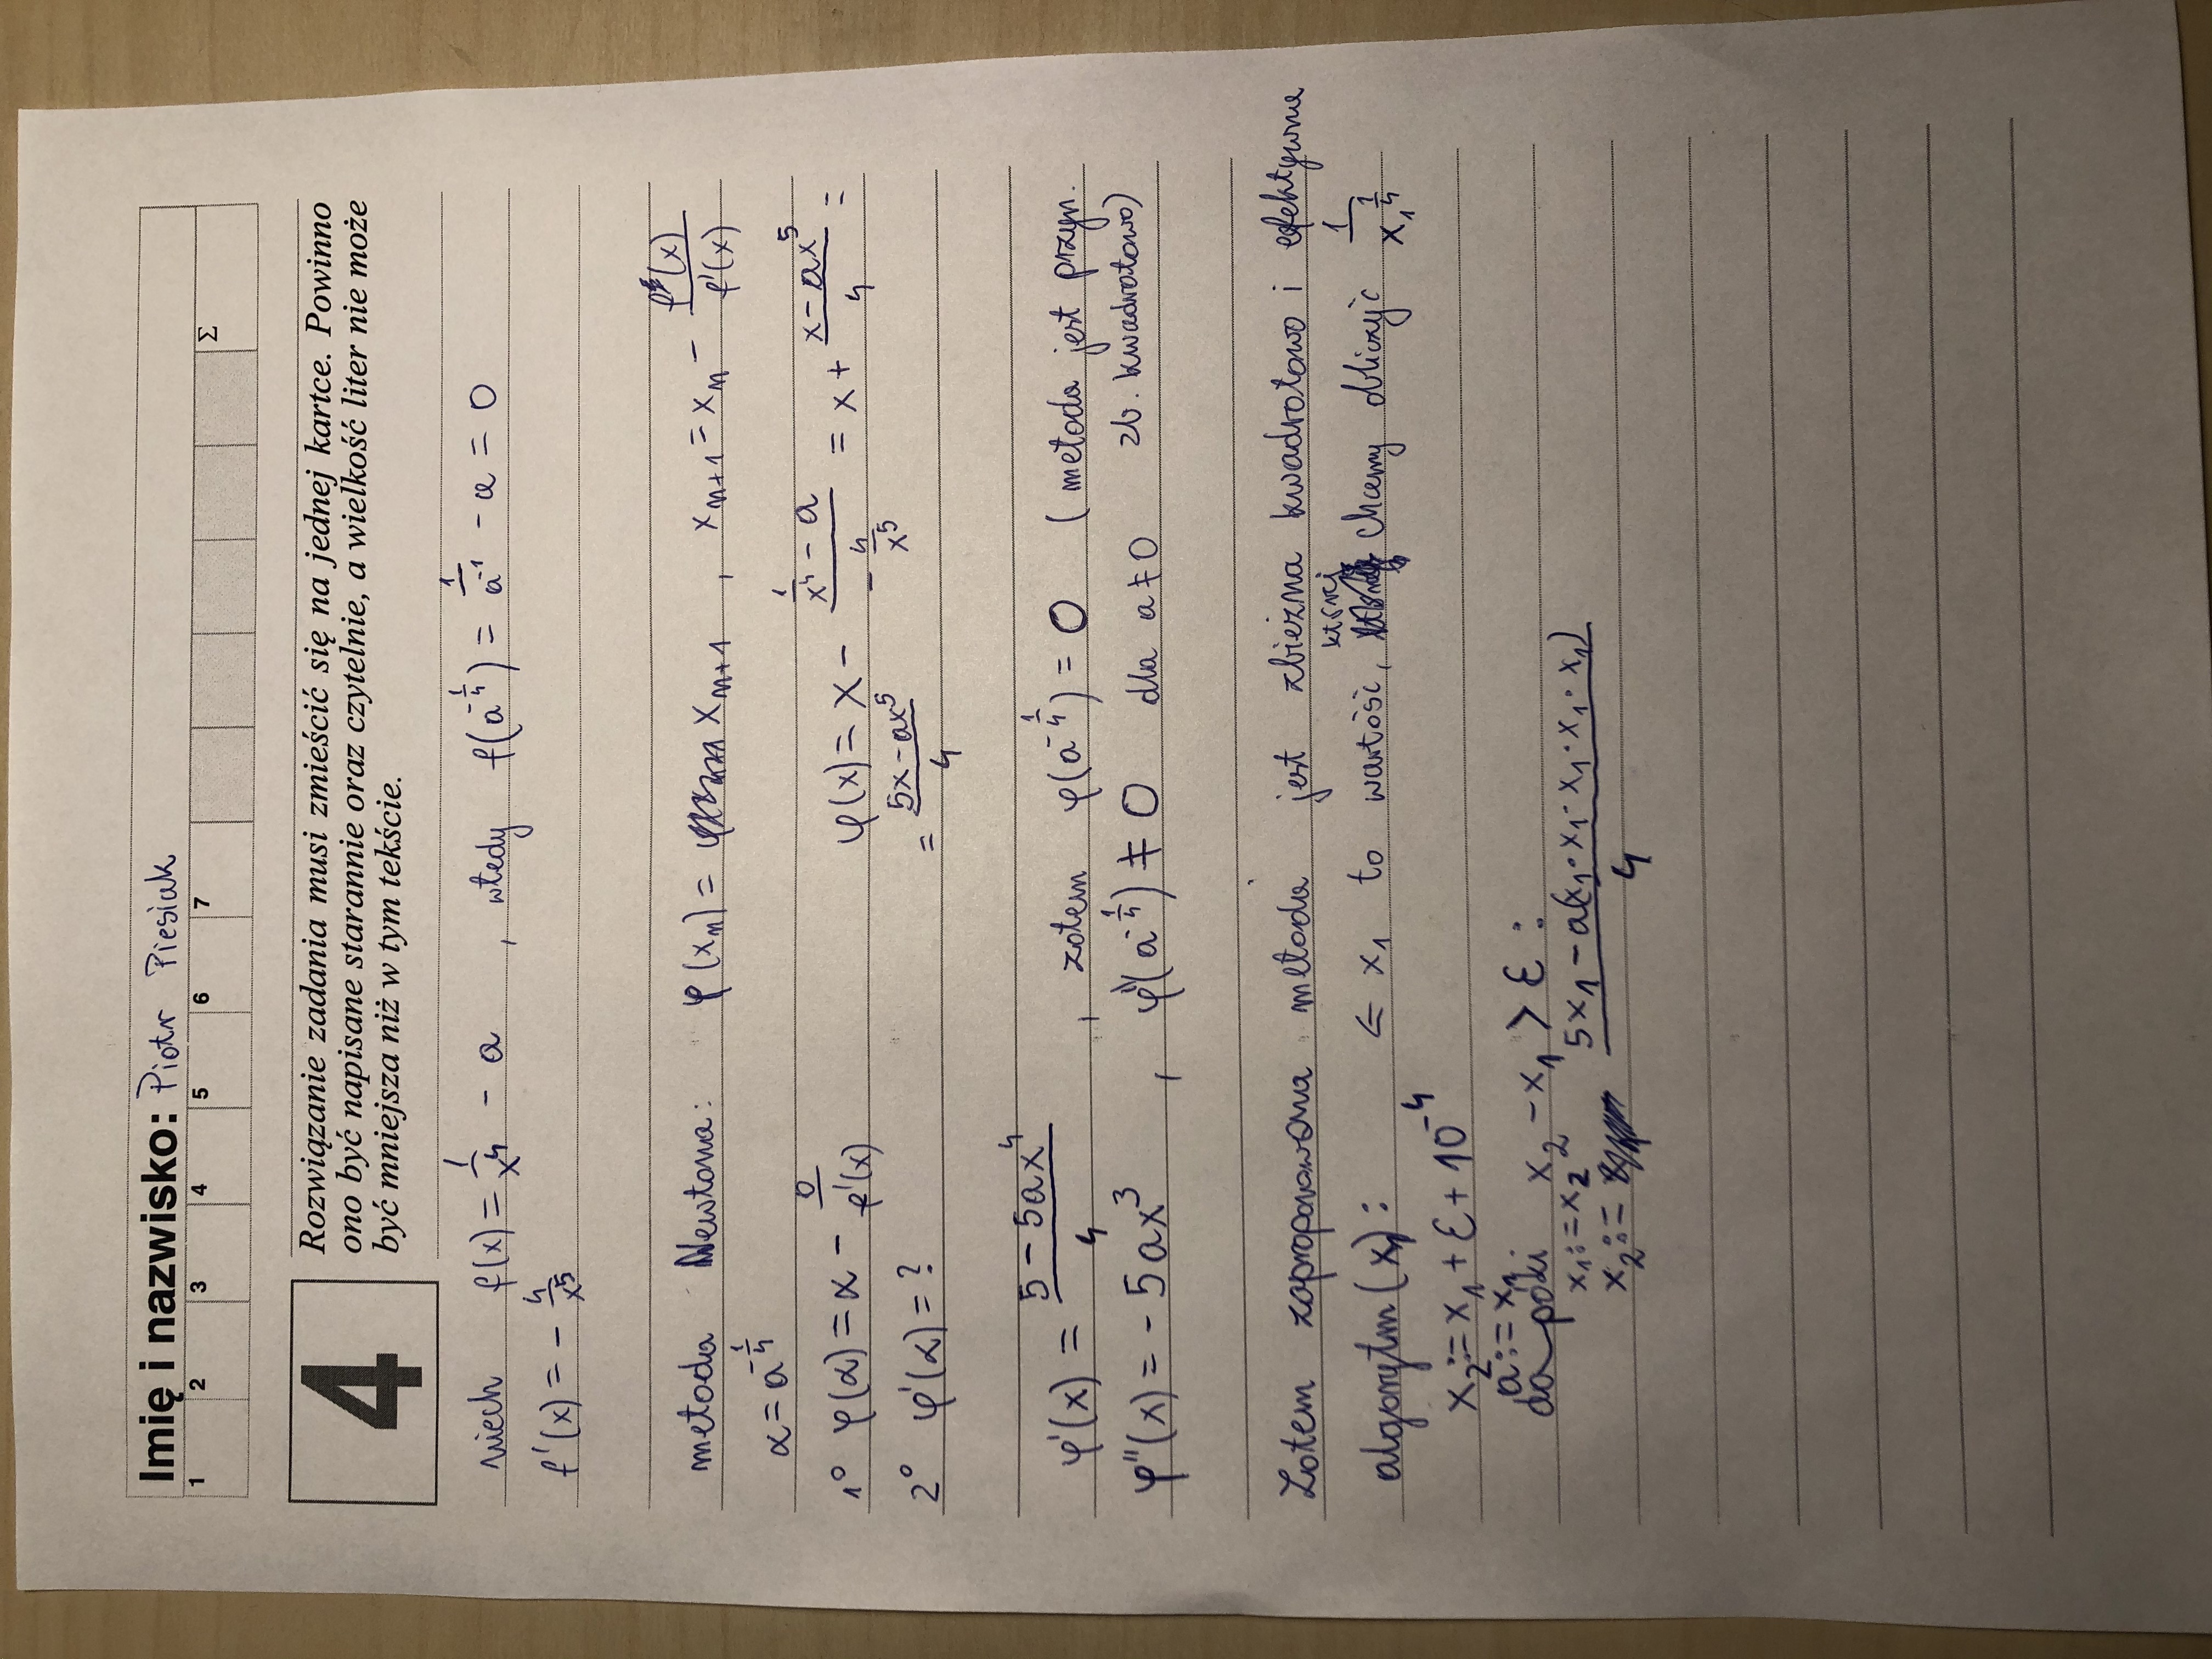 Imię i nazwisko: Piotr Piesiak
1 2 3 4 5 6 7 Σ
4
Rozwiązanie zadania musi zmieścić się na jednej kartce. Powinno
ono być napisane starannie oraz czytelnie, a wielkość liter nie może
być mniejsza niż w tym tekście.
niech f(x) = 1/x⁴ - a , wtedy f(a^(-1/4)) = 1/a⁻¹ - a = 0
f'(x) = - 4/x⁵
metoda Newtona: φ(xₙ) = xₙ₊₁ , xₙ₊₁ = xₙ - f(x)/f'(x)
α = a^(-1/4)
1° φ(α) = α - 0/f'(x) φ(x) = x - (1/x⁴ - a)/(-4/x⁵) = x + (x - ax⁵)/4 =
2° φ'(α) = ? = (5x - ax⁵)/4
φ'(x) = (5 - 5ax⁴)/4 , zatem φ(a^(-1/4)) = 0 (metoda jest przyn.
zb. kwadratowo)
φ''(x) = - 5ax³ , φ''(a^(-1/4)) ≠ 0 dla a ≠ 0
Zatem zaproponowana metoda jest zbieżna kwadratowo i efektywna
algorytm(x₁): ⇐ x₁ to wartość, której chcemy obliczyć 1/x₁^(1/4)
x₂ := x₁ + ε + 10⁻⁴
a := x₁.
da póki x₂ - x₁ > ε :
x₁ := x₂
x₂ := (5x₁ - a(x₁·x₁·x₁·x₁·x₁))/4